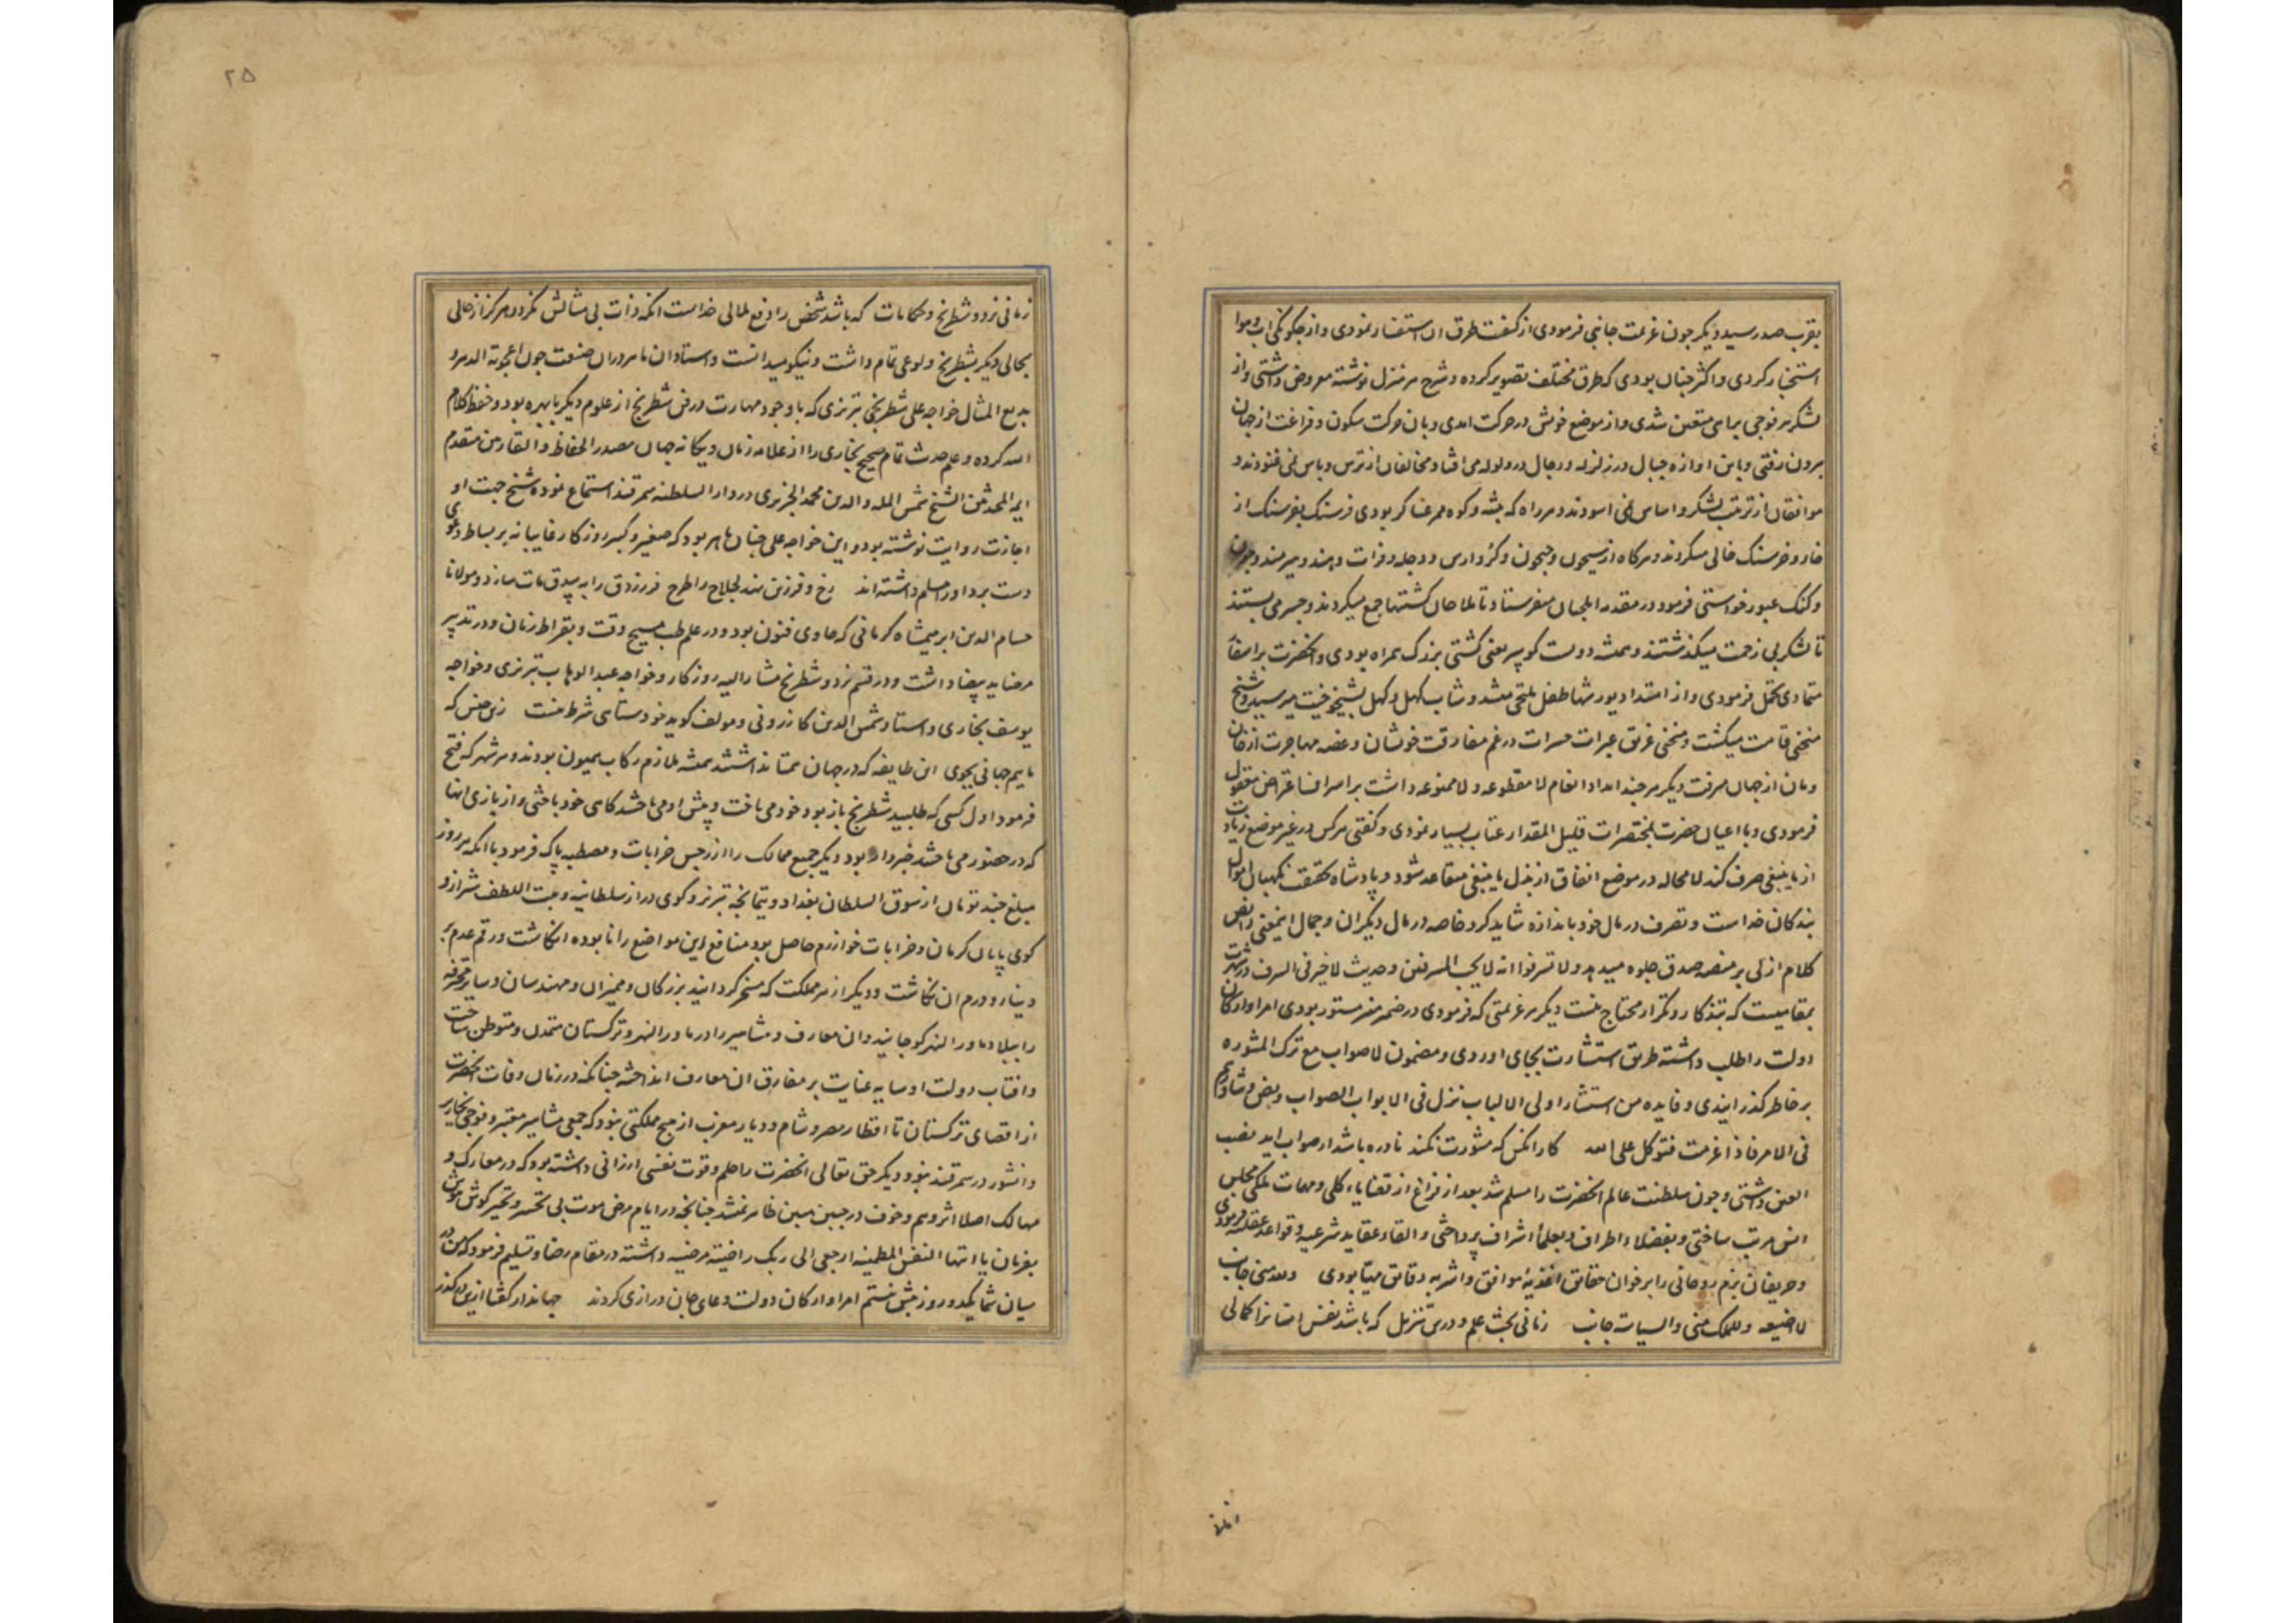 بقرب صدر سید دیکر چون عزیمت جانبی فرمودی از کیفیت طرق ان استفسار نمودی و از چکونکی اب و هوا
استخبار کردی و اکثر چنان بودی که طرق مختلف تصویر کرده و شرح هر منزل نوشته معروض داشتی و از
لشکر هر فوجی براهی متعین شدی و از موضع خویش در حرکت امدی و بان حرکت سکون و فراغت از جهان
بیرون رفتی و باین اوازه جبال در زلزله و رجال در ولوله می افتاد و مخالفان از ترس و باس نمی غنودند و
موافقان از ترتیب لشکر و اساس نمی اسودند و هر راه که بیشه و کوه ممر عساکر بودی فرسنک بفرسنک از
خار و خرسنک خالی میکردند و هرکاه از سیحون و جیحون و کر و ارس و دجله و فرات و هند و هیرمند و جون
و کنک عبور خواستی فرمود در مقدمه ایلچیان میفرستاد تا ملاحان کشتیها جمع میکردند و جسر می بستند
تا لشکر بی زحمت میکذشتند و همیشه دویست کوپیر یعنی کشتی بزرک همراه بودی و انحضرت براسفار
متمادی تحمل فرمودی و از امتداد یورشها طفل ملتحی میشد و شاب کهل و کهل بشیخوخیت میرسید و شیخ
منحنی قامت میکشت و منحنی غریق عبرات حسرات در غم مفارقت خویشان و غصه مهاجرت از خان
و مان از جهان میرفت دیکر هر چند امداد انعام لا مقطوعه و لا ممنوعه داشت بر اسراف اعتراض معقول
فرمودی و با اعیان حضرت بمختصرات قلیل المقدار عتاب بسیار نمودی و کفتی هرکس در غیر موضع زیادت
از ما ینبغی صرف کند لا محاله در موضع انفاق از بذل ما ینبغی متقاعد شود و پادشاه بحقیقت نکهبان اموال
بندکان خداست و تصرف در مال خود باندازه شاید کرد خاصه در مال دیکران و جمال اینمعنی را نص
کلام ازلی بر منصه صدق جلوه میدهد و لا تسرفوا انه لا یحب المسرفین و حدیث لا خیر فی السرف در شهرت
بمقامیست که بتذکار و تکرار محتاج نیست دیکر هر عزیمتی که فرمودی در ضمیر منیر مستور بودی امرا و ارکان
دولت را طلب داشته طریق استشارت بجای اوردی و مضمون لا صواب مع ترک المشوره
بر خاطر کذرانیدی و فایده من استشار اولی الالباب نزل فی الابواب الصواب و بنص و شاورهم
فی الامر فاذا عزمت فتوکل علی الله کار انکس که مشورت نکند نادره باشد ار صواب اید نصب
العین داشتی و چون سلطنت عالم انحضرت را مسلم شد بعد از فراغ از قضایاء کلی و مهمات ملکی مجلس
انس مرتب ساختی و بفضلاء اطراف و بعلماء اشراف پرداختی و القاء عقاید شرعیه و قواعد عقلیه فرمودی
و حریفان بزم روحانی را بر خوان حقایق اغذیهٔ موافق و اشربه دقایق مهیا بودی ولله منی جانب
لا اضیعه وللملک منی والسیاسة جانب زمانی بحث علم و درس تنزیل که باشد نفس انسانرا کمالی
زمانی
۲۵
زمانی نرد و شطرنج و حکایات که باشد شخص را دفع ملالی خداست انکه ذات بی مثالش نکردد هرکز از حالی
بحالی دیکر بشطرنج ولوعی تمام داشت و نیکو میدانست و استادان ماهر دران صنعت چون اعجوبة الدهر و
بدیع المثال خواجه علی شطرنجی تبریزی که با وجود مهارت در فن شطرنج از علوم دیکر با بهره بود و حفظ کلام
الله کرده و علم حدیث تمام صحیح بخاری را از علامه زمان و یکانه جهان مصدر الحفاظ و القادمین متقدم
ایمه المحدثین الشیخ شمس المله والدین محمد الجزیری در دار السلطنه سمرقند استماع نموده شیخ جهت او
اجازت روایت نوشته بود و این خواجه علی چنان ماهر بود که صغیر و کبیر روزکار غایبانه بر بساط دعوی
دست برد او را مسلم داشته اند رخ و فرزین نهد لجلاج را طرح فرزدق را به بیدق مات سازد و مولانا
حسام الدین ابرهیمشاه کرمانی که حاوی فنون بود و در علم طب مسیح وقت و بقراط زمان و در تدبیر
مرضا ید بیضا داشت و در قسم نرد و شطرنج مشار الیه روزکار و خواجه عبد الوهاب تبریزی و خواجه
یوسف بخاری و استاد شمس الدین کازرونی و مولف کوید خودستایی شرط نیست زین جنس که
مایم جهانی بجوی این طایفه که در جهان همتا نداشتند همیشه ملازم رکاب همیون بودند و هر شهر که فتح
فرمود اول کسی که طلبید شطرنج باز بود خود می باخت و پیش او می باختند کاهی خود باختی و از بازی انها
که در حضور می باختند خبردار بود دیکر جمیع ممالک را از رجس خرابات و مصطبه پاک فرمود با انکه هر روز
مبلغ چند تومان از سوق السلطان بغداد و یتماخچه تبریز و کوی دراز سلطانیه و بیت اللطف شیراز و
کوی پایان کرمان و خرابات خوارزم حاصل بود منافع این مواضع را نابوده انکاشت و رقم عدم بر
دینار و درم ان نکاشت و دیکر از هر مملکت که مسخر کردانید بزرکان و ممیزان و مهندسان و سایر محترفه
را ببلاد ماورالنهر کوچانید وان معارف و مشاهیر را در ماورالنهر و ترکستان متمدن و متوطن ساخت
و افتاب دولت او سایه عنایت بر مفارق ان معارف انداخته چنانکه در زمان وفات انحضرت
از اقصای ترکستان تا اقطار مصر و شام و دیار مغرب از هیچ مملکتی نبود که جمعی مشاهیر معتبر و فوجی نحاریر
دانشور در سمرقند نبود و دیکر حق تعالی انحضرت را حلم و قوت نفسی ارزانی داشته بود که در معارک و
مهالک اصلا اثر وهم و خوف در جبین مبین ظاهر نمیشد چنانچه در ایام مرض موت بی تحسر و تحیر کوش هوش
بفرمان یا ایتها النفس المطمینه ارجعی الی ربک راضیة مرضیه داشته در مقام رضا و تسلیم فرمود که من در
میان شما یکدو روز بیش نیستم امرا و ارکان دولت دعای جان درازی کردند جهاندار کفتا ازین درکذر